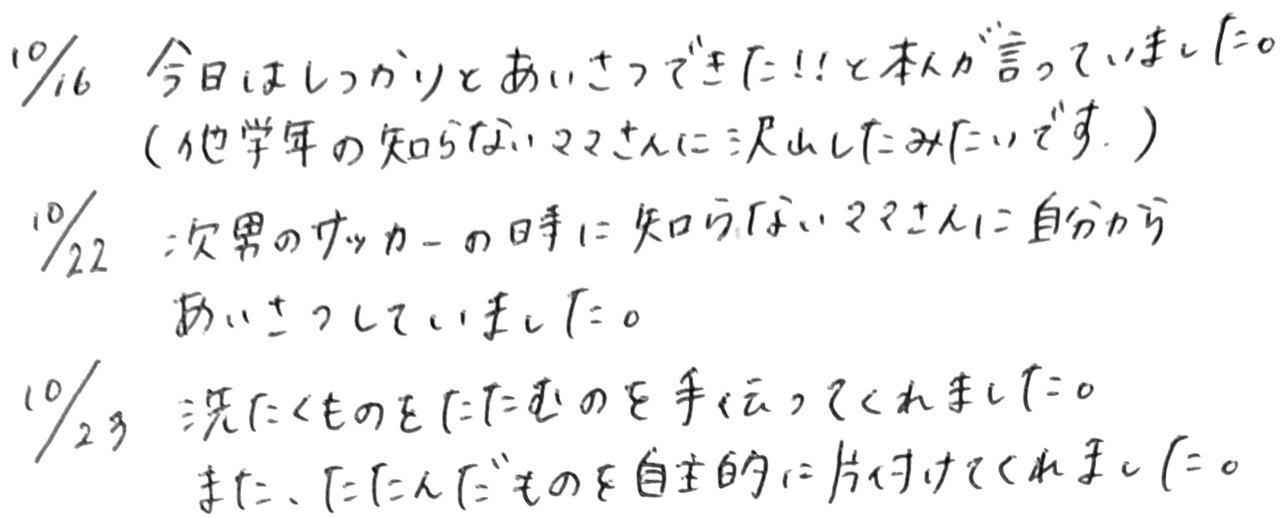 10/16 今日はしっかりとあいさつできた!!と本人が言っていました。
(他学年の知らないママさんに沢山したみたいです.)
10/22 次男のサッカーの時に知らないママさんに自分から
あいさつしていました。
10/23 洗たくものをたたむのを手伝ってくれました。
また、たたんだものを自主的に片付けてくれました。